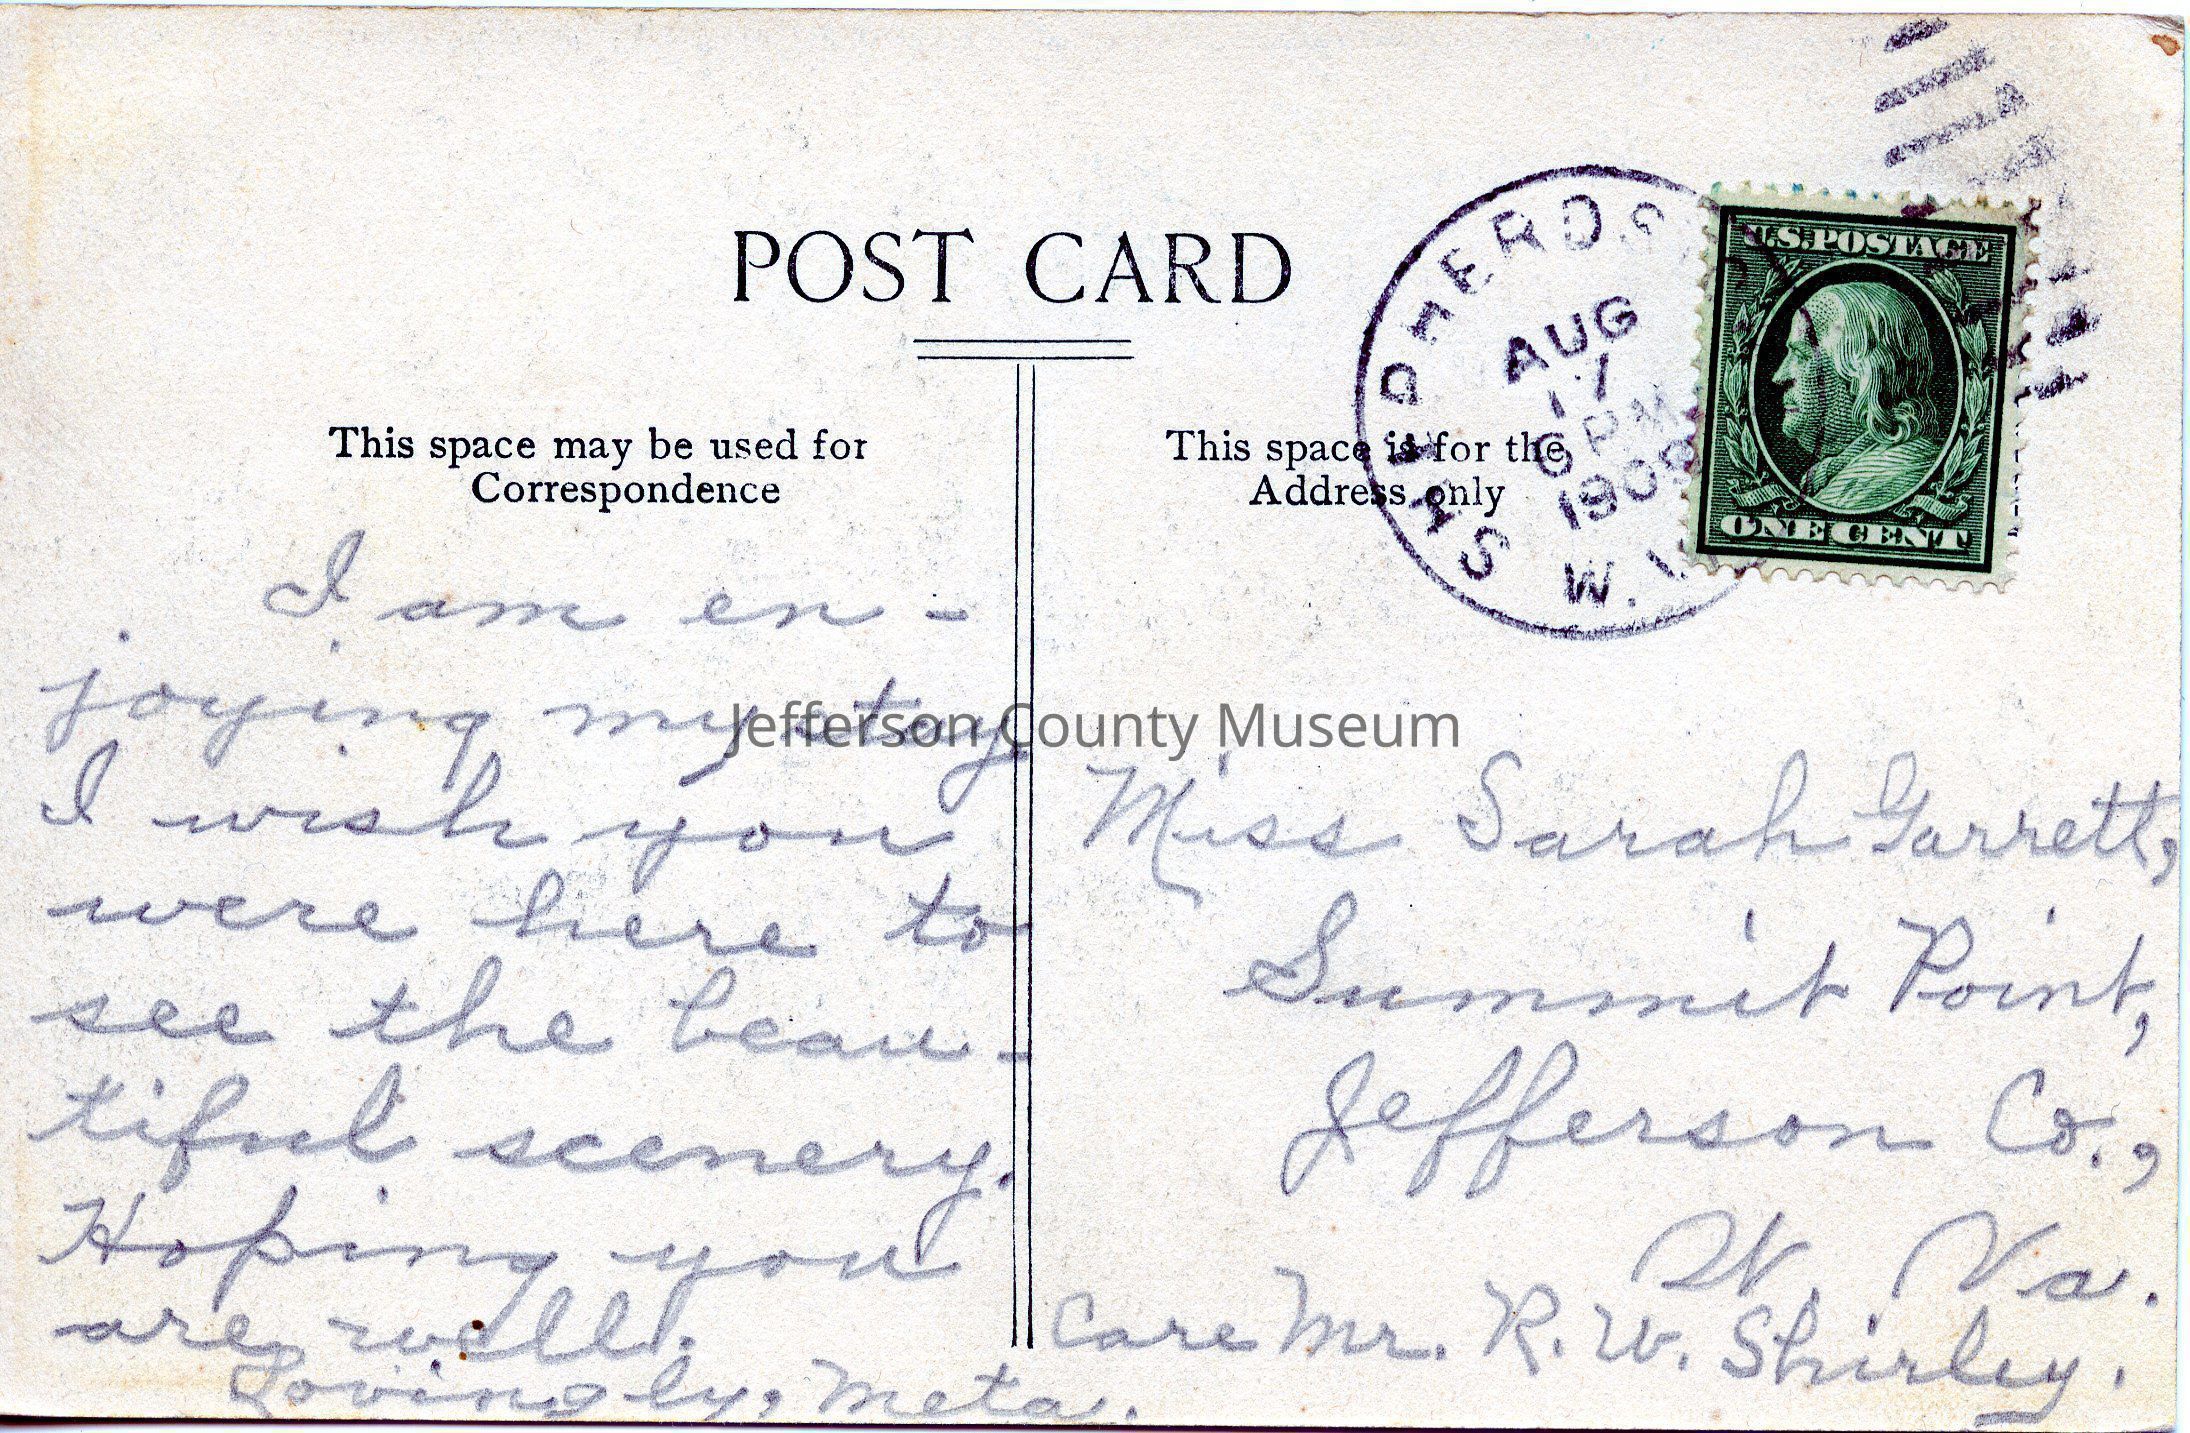 POST CARD
This space may be used for
Correspondence
This space is for the
Address only
SHEPHERDS
AUG
17
6 PM
1909
W. V
U.S. POSTAGE
ONE CENT
I am en-
joying my stay
I wish you
were here to
see the beau-
tiful scenery.
Hoping you
are well.
Lovingly, Meta.
Jefferson County Museum
Miss Sarah Garrett,
Summit Point,
Jefferson Co.,
W. Va.
Care Mr. R. W. Shirley.